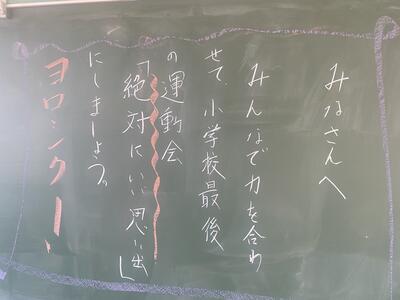 みなさんへ
みんなで力を合わ
せて、小学校最後
の運動会
「絶対にいい思い出」
にしましょう。
ヨロシクー!